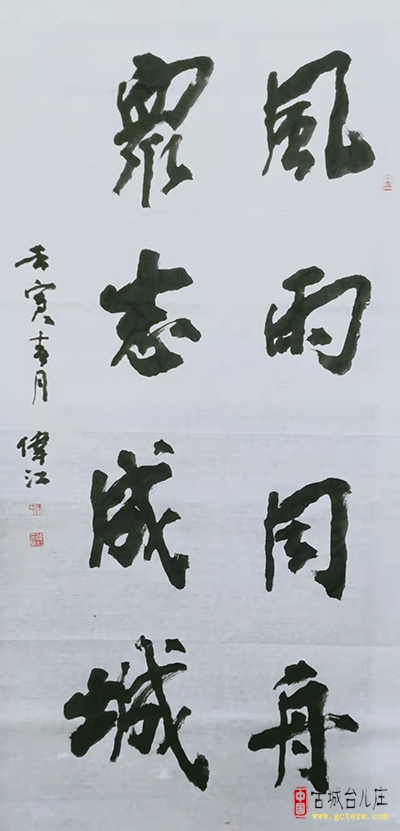 風雨同舟
眾志成城
壬寅春月 偉江
中国 古城台儿庄
www.gctezw.com